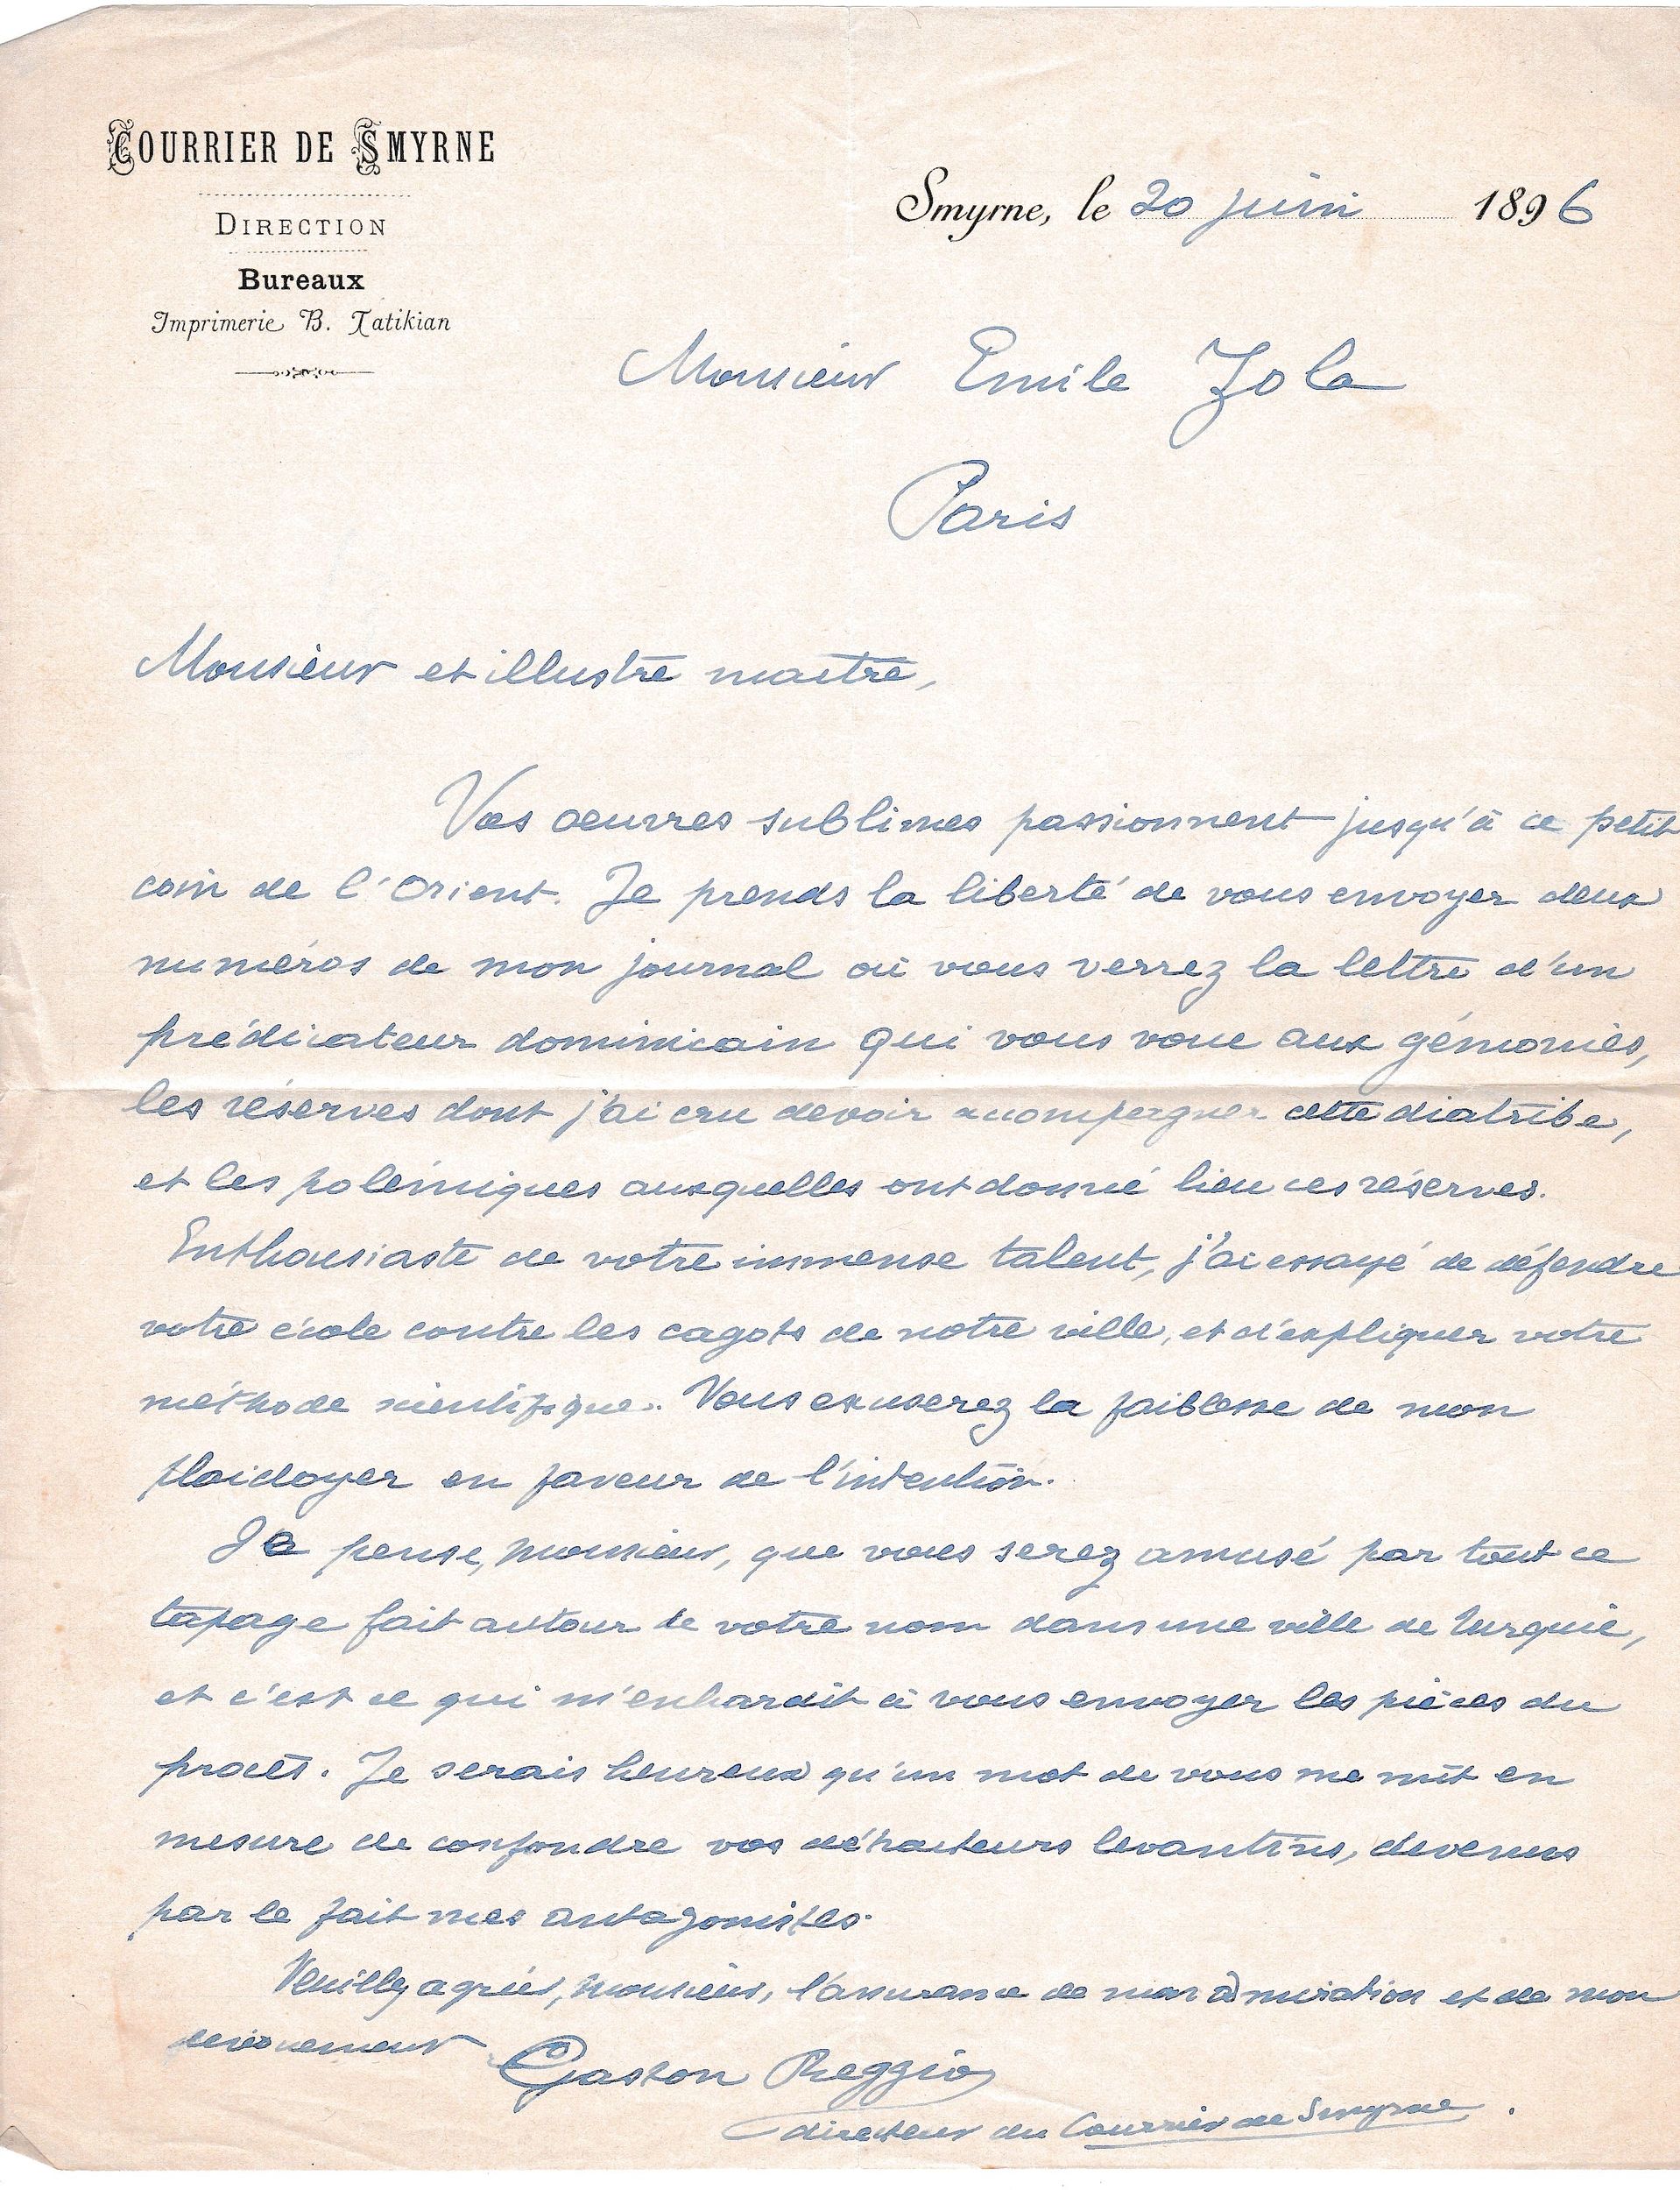 COURRIER DE SMYRNE
DIRECTION
Bureaux
Imprimerie B. Tatikian
Smyrne, le 20 juin 1896
Monsieur Emile Zola
Paris
Monsieur et illustre maître,
Vos oeuvres sublimes passionnent jusqu'à ce petit
coin de l'Orient. Je prends la liberté de vous envoyer deux
numéros de mon journal où vous verrez la lettre d'un
prédicateur dominicain qui vous voue aux gémonies,
les réserves dont j'ai cru devoir accompagner cette diatribe,
et les polémiques auxquelles ont donné lieu ces réserves.
Enthousiaste de votre immense talent, j'ai essayé de défendre
votre école contre les cagots de notre ville, et d'expliquer votre
méthode scientifique. Vous excuserez la faiblesse de mon
plaidoyer en faveur de l'intention.
Je pense, monsieur, que vous serez amusé par tout ce
tapage fait autour de votre nom dans une ville de Turquie,
et c'est ce qui m'enhardit à vous envoyer les pièces du
procès. Je serais heureux qu'un mot de vous me mît en
mesure de confondre vos détracteurs levantins, devenus
par le fait mes antagonistes.
Veuillez agréer, monsieur, l'assurance de mon admiration et de mon
dévouement
Gaston Reggio
directeur du Courrier de Smyrne.